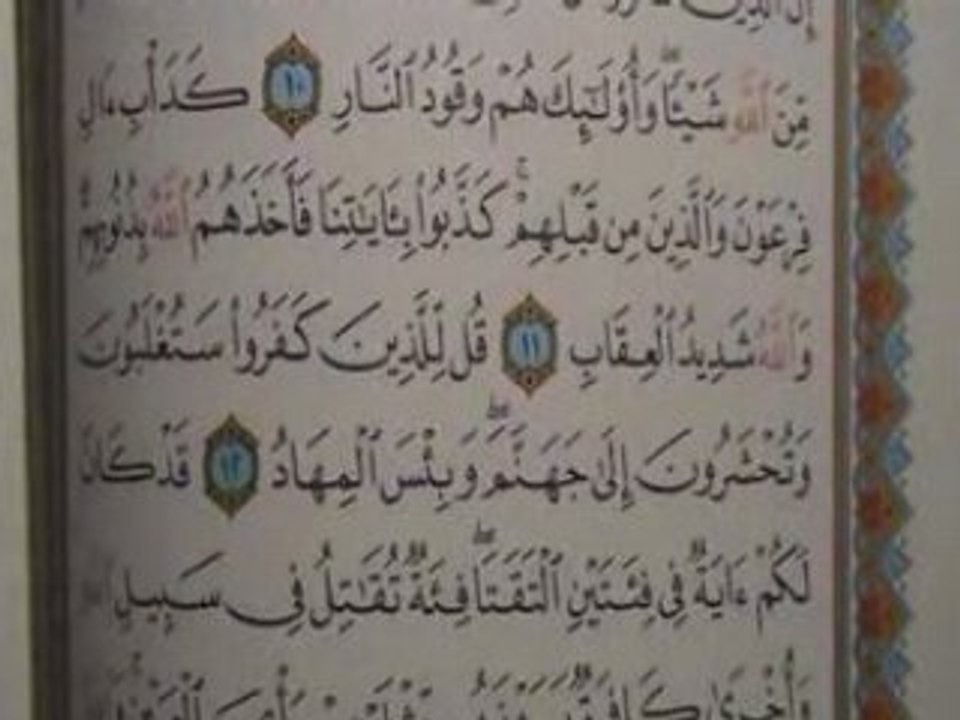 مِّنَ ٱللَّهِ شَيْـًٔا ۖ وَأُو۟لَـٰٓئِكَ هُمْ وَقُودُ ٱلنَّارِ ١٠ كَدَأْبِ ءَالِ
فِرْعَوْنَ وَٱلَّذِينَ مِن قَبْلِهِمْ ۚ كَذَّبُوا۟ بِـَٔايَـٰتِنَا فَأَخَذَهُمُ ٱللَّهُ بِذُنُوبِهِمْ
وَٱللَّهُ شَدِيدُ ٱلْعِقَابِ ١١ قُل لِّلَّذِينَ كَفَرُوا۟ سَتُغْلَبُونَ
وَتُحْشَرُونَ إِلَىٰ جَهَنَّمَ ۖ وَبِئْسَ ٱلْمِهَادُ ١٢ قَدْ كَانَ
لَكُمْ ءَايَةٌ فِى فِئَتَيْنِ ٱلْتَقَتَا ۖ فِئَةٌ تُقَـٰتِلُ فِى سَبِيلِ ٱللَّهِ